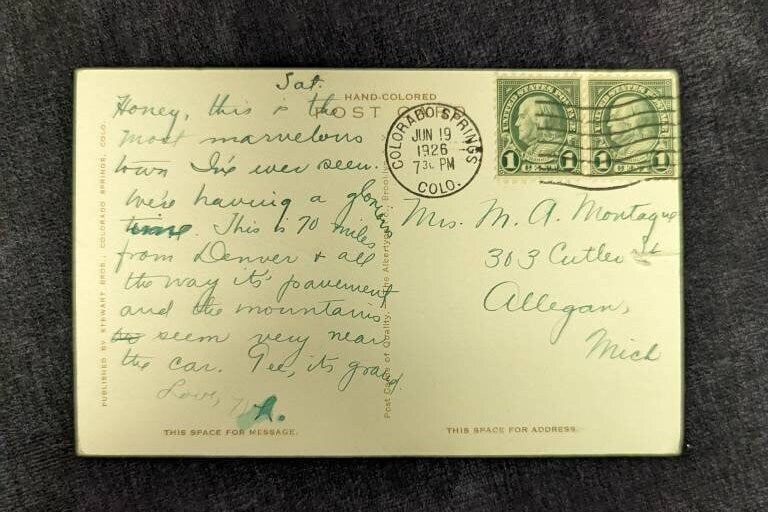 Sat.
Honey, this is the
most marvelous
town I've ever seen.
We're having a glorious
time. This is 70 miles
from Denver & all
the way it's pavement
and the mountains
seem very near
the car. Gee, it's grand.
Love,
A.
THIS SPACE FOR MESSAGE.
PUBLISHED BY STEWART BROS., COLORADO SPRINGS, COLO.
HAND-COLORED
POST CARD
Post Cards of Quality. - The Albertype Co., Brooklyn
COLORADO SPRINGS
JUN 19
1926
7 PM
COLO.
UNITED STATES POSTAGE
1 CENT 1
UNITED STATES POSTAGE
1 CENT 1
Mrs. M. A. Montague
303 Cutler St
Allegan,
Mich
THIS SPACE FOR ADDRESS.